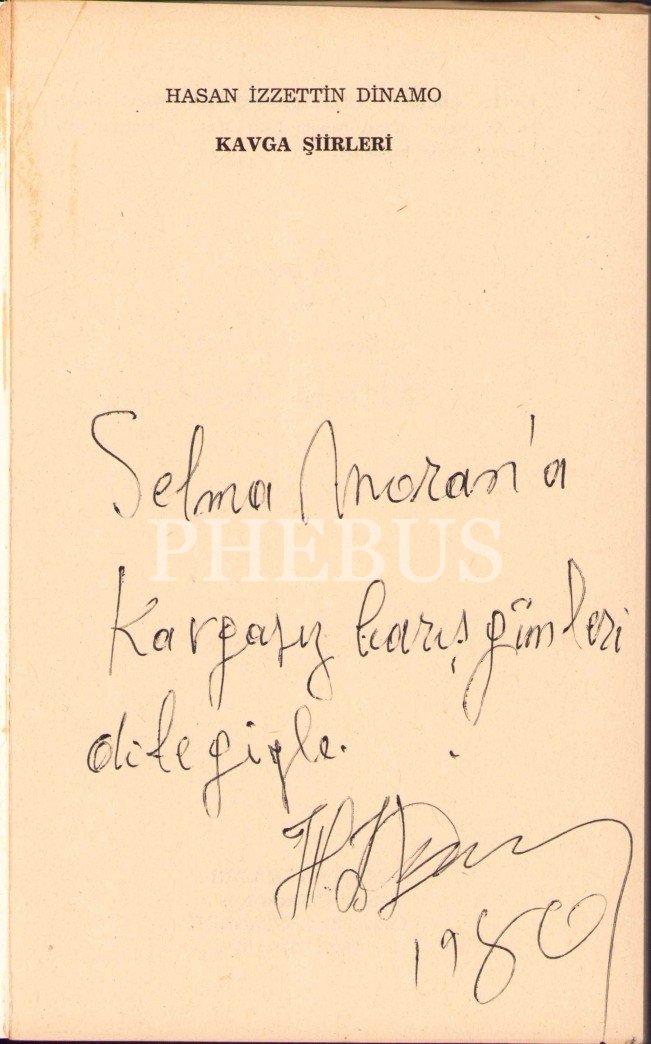 HASAN İZZETTİN DİNAMO
KAVGA ŞİİRLERİ
Selma Anoran'a
PHEBUS
Kavgasız barış günleri
dileğiyle.
1980